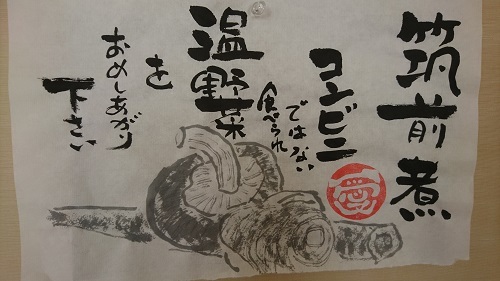 筑前煮
コンビニ
ではない
食べられ
温野菜
を
おめしあがり
下さい
愛